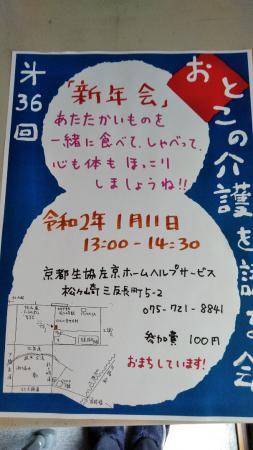 おとこの介護を話す会
第36回
「新年会」
あたたかいものを
一緒に食べて、しゃべって、
心も体もほっこり
しましょうね!!
令和2年1月11日
13:00-14:30
京都生協左京ホームヘルプサービス
松ヶ崎三反長町5-2
075-721-8841
参加費 100円
おまちしています!